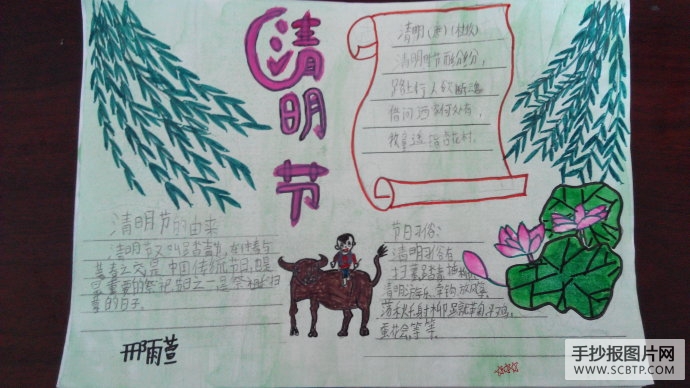 清明节
清明(唐)(杜牧)
清明时节雨纷纷,
路上行人欲断魂
借问酒家何处有,
牧童遥指杏花村.
清明节的由来
清明节又叫踏青节,在仲春与
暮春之交是中国传统节日,也是
最重要的祭祀节日之一是祭祖扫
墓的日子.
邢雨萱
节日习俗:
清明习俗有
扫墓踏青植树
清明
放风筝,
荡秋千身
蚕花会等等.
手抄报图片网
WWW.SCBTP.COM